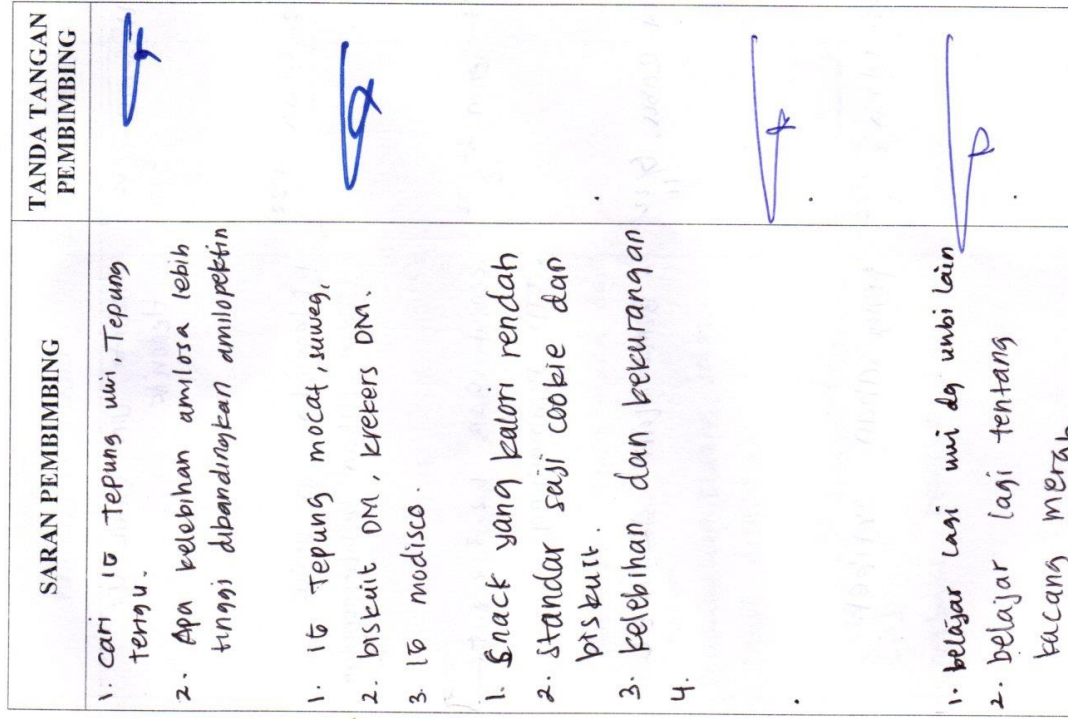 SARAN PEMBIMBING
TANDA TANGAN
PEMBIMBING
1. cari IG Tepung uwi, Tepung
terigu.
2. Apa kelebihan amilosa lebih
tinggi dibandingkan amilopektin
1. IG Tepung mocaf, suweg,
2. biskuit DM, krekers DM.
3. IG modisco.
1. Snack yang kalori rendah
2. standar saji cookie dan
biskuit.
3. kelebihan dan kekurangan
4.
1. belajar lagi uwi dg umbi lain
2. belajar lagi tentang
kacang merah